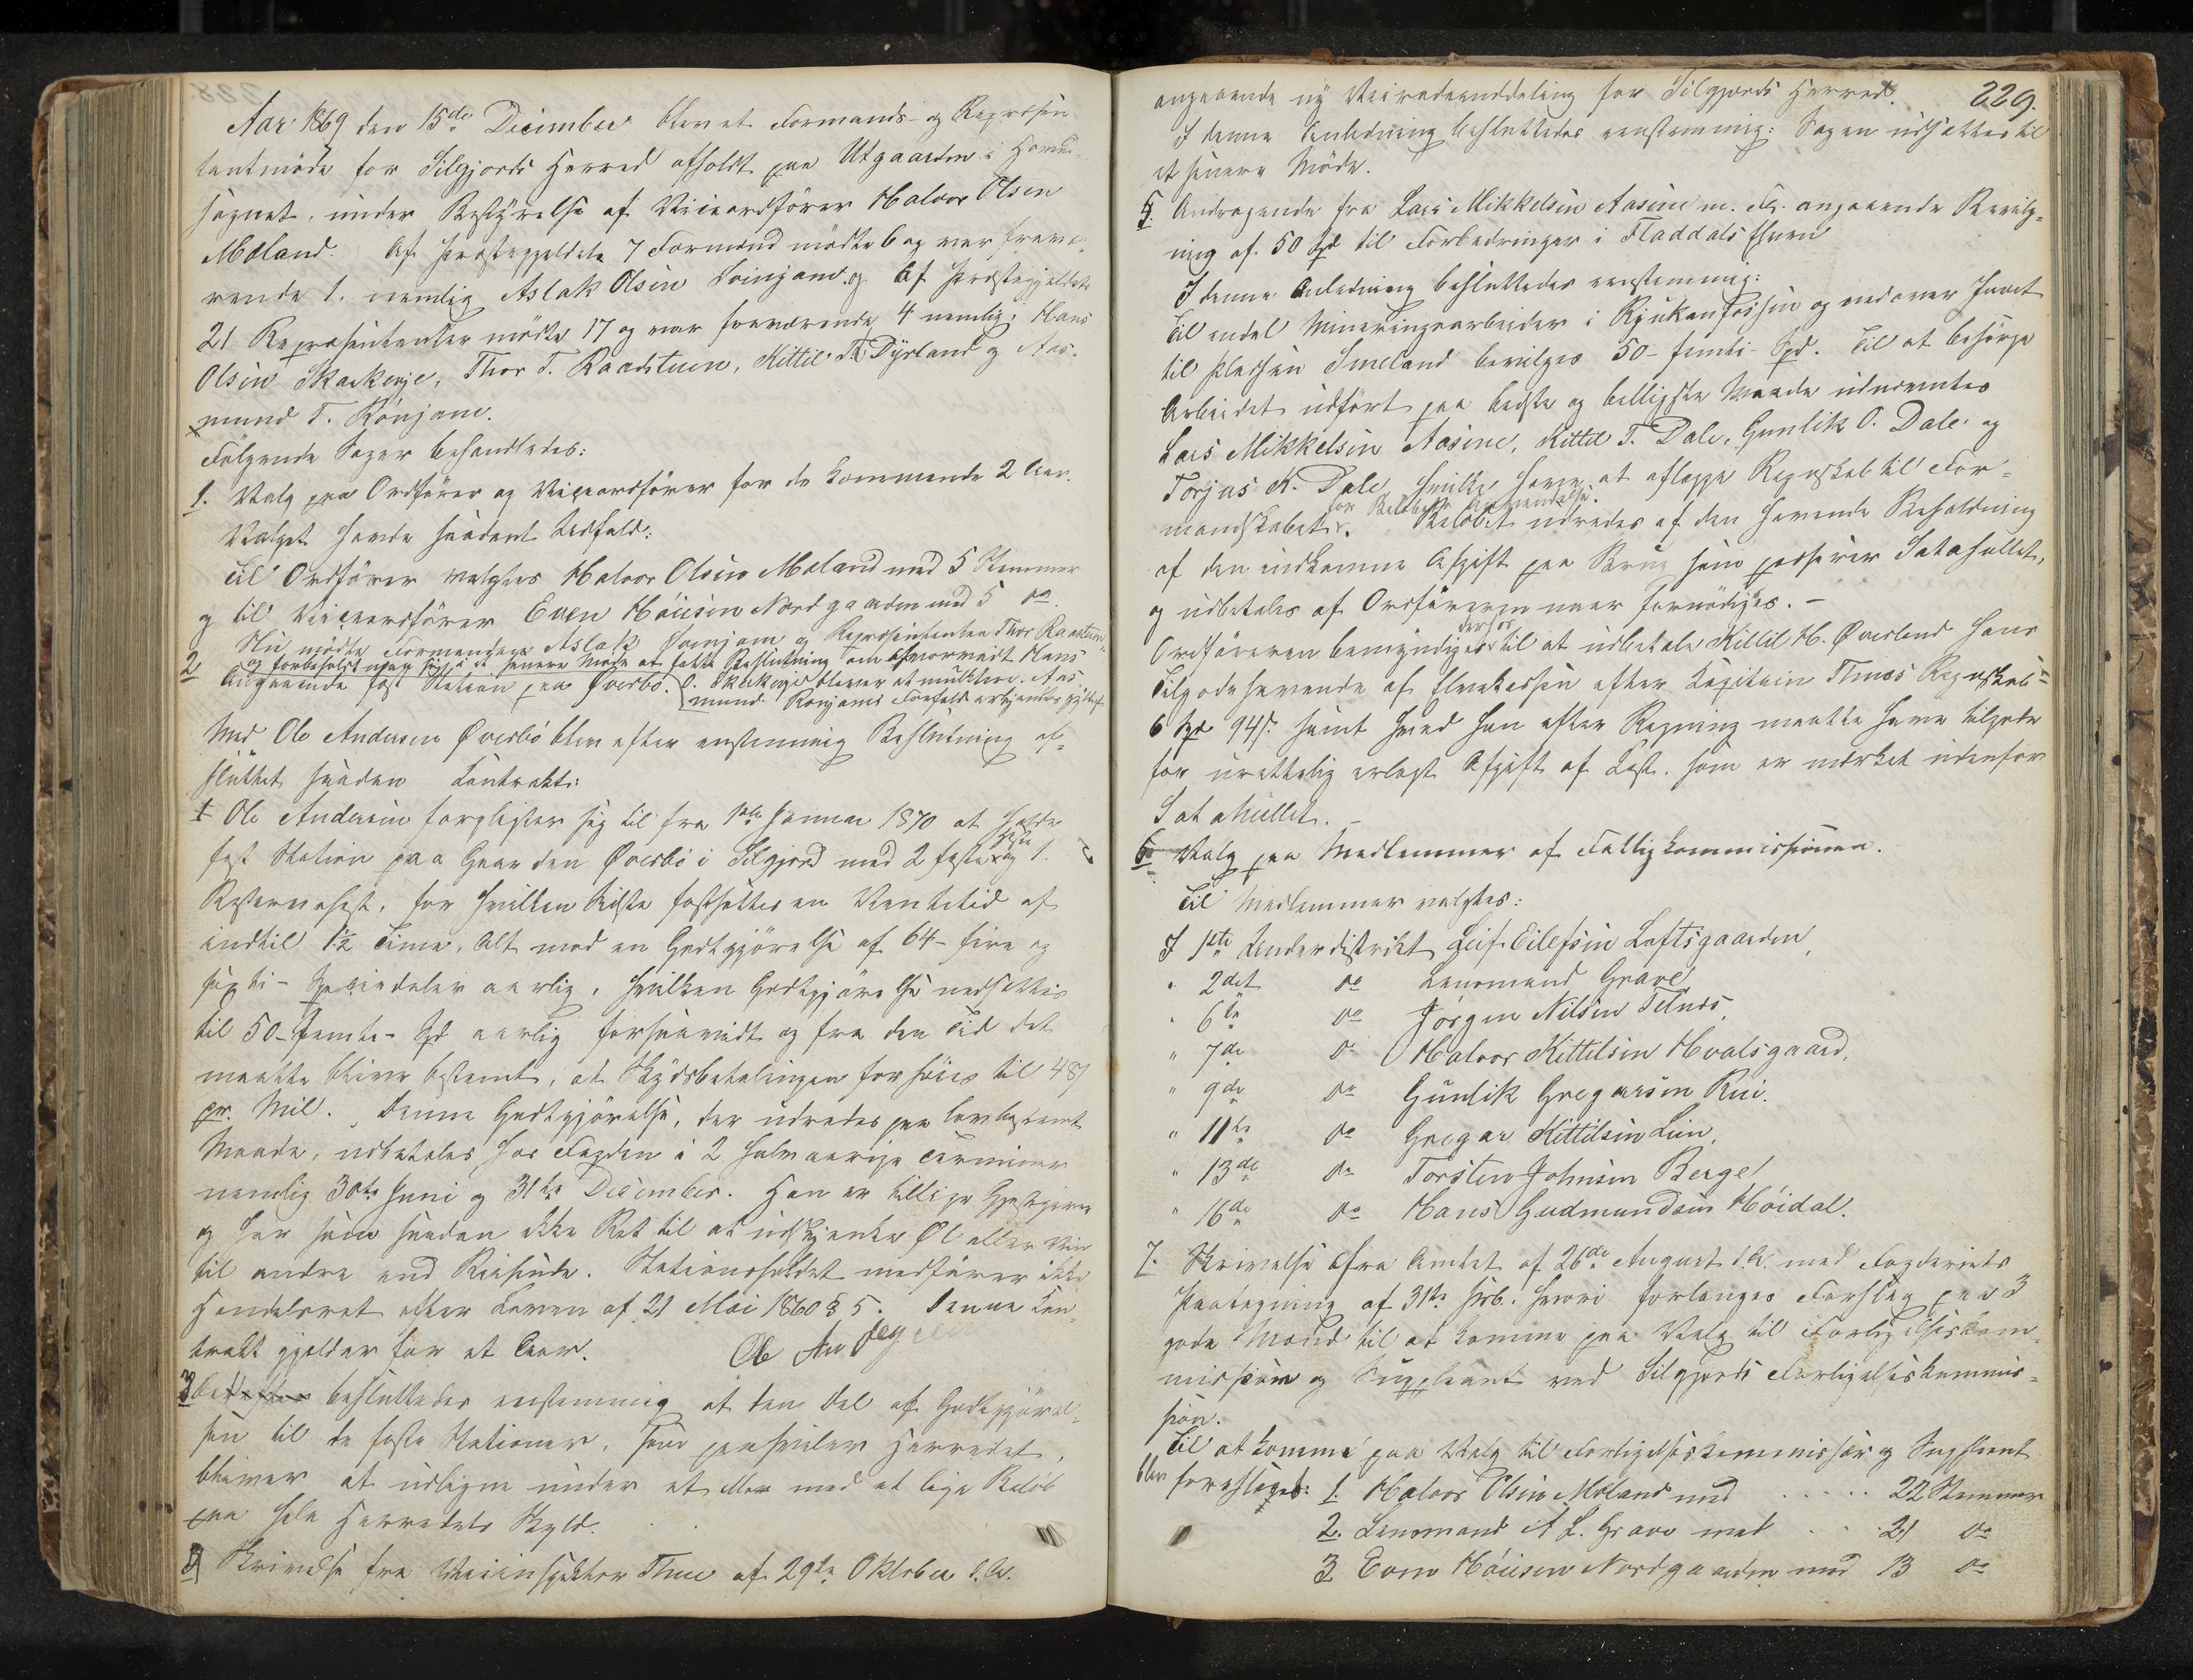 Aar 1869 den 15de December blev et Formands- og Repræsen-
tantmøde for Silgjords Herred afholdt paa Utgaarden i Hovind
sognet, under Bestyrelse af Viceordfører Halvor Olsen
Moland. Af Præstegjeldets 7 Formænd mødte 6 og var fravæ-
rende 1. nemlig Aslak Olsen Loinjam og af Præstegjeldets
21 Repræsentanter mødte 17 og var fraværende 4 nemlig: Hans
Olsen Skarkerje, Thor T. Raadstuen, Kittil Dyrland og Aas-
mund T. Rönjom.
Følgende Sager behandledes:
1. Valg paa Ordfører og Viceordfører for de kommende 2 Aar.
Valget havde saadant Udfald:
Til Ordfører valgtes Halvor Olsen Moland med 5 Stemmer
og til Viceordfører Even Höiesen Nordgaarden med 5 do.
Nu mødte Formanden Aslak Loinjam og Repræsentanten Thor Raastuen
og forbeholdt man sig i et senere Møde at fatte Beslutning om hvorvidt Hans
2 Angaaende fast Station paa Överbö. O. Skarkerje bliver at mulktere. Aas-
mund Rönjoms Forfald erkjendtes gyldigt.
Med Ole Andersen Øverbö blev efter enstemmig Beslutning af-
sluttet saadan Contrakt:
1 Ole Andersen forpligter sig til fra 1ste Januar 1870 at holde
fast Station paa Gaarden Øverbö i Silgjord med 2 faste Heste og 1.
Reservehest, for hvilken sidste fastsættes en Ventetid af
indtil 1½ Time. Alt mod en Godtgjørelse af 64- fire og
sexti- Speciedaler aarlig, hvilken Godtgjørelse nedsættes
til 50- femti- Spd aarlig forsaavidt og fra den Tid det
maatte blive bestemt, at Skydsbetalingen forhøies til 48 s
pr. Mil. Denne Godtgjørelse, der udredes paa lovbestemt
Maade, udbetales hos Fogden i 2 halvaarige Terminer
nemlig 30te Juni og 31te December. Han er tillige Gjestgiver
og har som saadan ikke Ret til at udskjenke Øl eller Vin
til andre end Reisende. Stationsholdet medfører ikke
Handelsret efter Loven af 21 Mai 1860 § 5. Denne Con-
trakt gjelder for et Aar. Ole Andersen
3 besluttedes enstemmig at den Del af Godtgjørel-
sen til de faste Stationer, som paahviler Herredet,
bliver at udligne under et med et lige Beløb
paa hele Herredets Skyld.
Skrivelse fra Veiinspektør Thue af 29de Oktober d. A.
229.
angaaende ny Veirodeinddeling for Silgjords Herred.
I denne Anledning besluttedes eenstemmig: Sagen udsættes til
et senere Møde.
5. Andragende fra Lars Mikkelsen Aasine m. Fl. angaaende Bevilg-
ning af 50 Spd til Forbedringer i Fladdals Elven
I denne Anledning besluttedes eenstemmig:
Til endel Mineringsarbeider i Rjukanfossen og nedover Juvet
til Pladsen Smeland bevilges 50- femti- Spd. Til at besørge
Arbeidet udført paa bedste og billigste Maade udnævntes
Lars Mikkelsen Aasine, Kittil T. Dale, Gunlik O. Dale og
Torjus K. Dale, hvilke have at aflægge Regnskab til For-
for Beløbets Anvendelse.
mandskabet. Beløbet udredes af den havende Beholdning
af den indkomne Afgift paa Brug som passerer Satahullet,
og udbetales af Ordføreren naar fornødiges. -
derhos
Ordføreren bemyndiges til at udbetale Kittil H. Øverland hans
Tilgodehavende af Elvekassen efter Kaptein Thues Regnskab =
6 Spd 94 s. samt hvad han efter Regning maatte have tilgode
for urettelig erlagt Afgift af Last, som er mærket udenfor
Satahullet. -
6 Valg paa Medlemmer af Fattigkommissionen.
Til Medlemmer valgtes:
I 1ste Underdistrikt Leif Eilefsen Loftsgaarden,
" 2det do Lensmand Grave
" 6te do Jörgen Nilsen Telnæs,
" 7de do Halvor Kittilsen Hvalsgaard,
" 9de do Gunlik Gregarsen Rui.
" 11te do Gregar Kittilsen Lien,
" 13de do Torsten Johnsen Berge
" 16de do Hans Gudmundsen Höidal.
7. Skrivelse fra Amtet af 26de August d. A. med Fogderiets
Paategning af 31te s. M. hvori forlanges Forslag paa 3
gode Mænd til at komme paa Valg til Forligelseskom-
missær og Suppleant ved Silgjords Forligelseskommis-
sion.
Til at komme paa Valg til Forligelseskommissær og Suppleant
blev foreslaget: 1. Halvor Olsen Moland med . . . . . 22 Stemmer
2. Lensmand A L. Grave med . . . 21 do
3. Even Höiesen Nordgaarden med 13 do